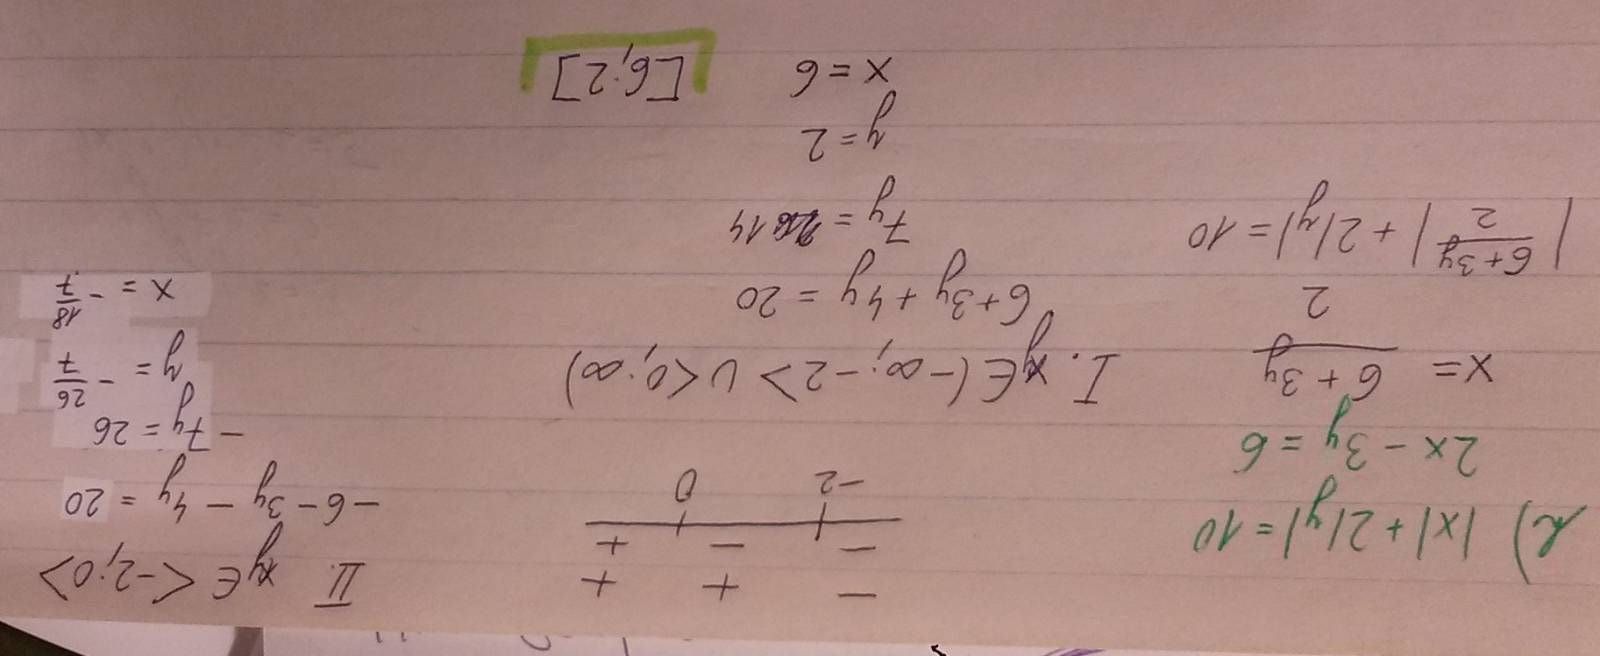 h) |x| + 2|y| = 10
2x - 3y = 6
x = \frac{6+3y}{2}
|\frac{6+3y}{2}| + 2|y| = 10
- + +
- - +
-2 0
I. y ∈ (-∞; -2> ∪ <0; ∞)
6+3y + 4y = 20
7y = 14
y = 2
x = 6 [6; 2]
II. y ∈ <-2; 0>
-6 - 3y - 4y = 20
-7y = 26
y = -\frac{26}{7}
x = -\frac{18}{7}